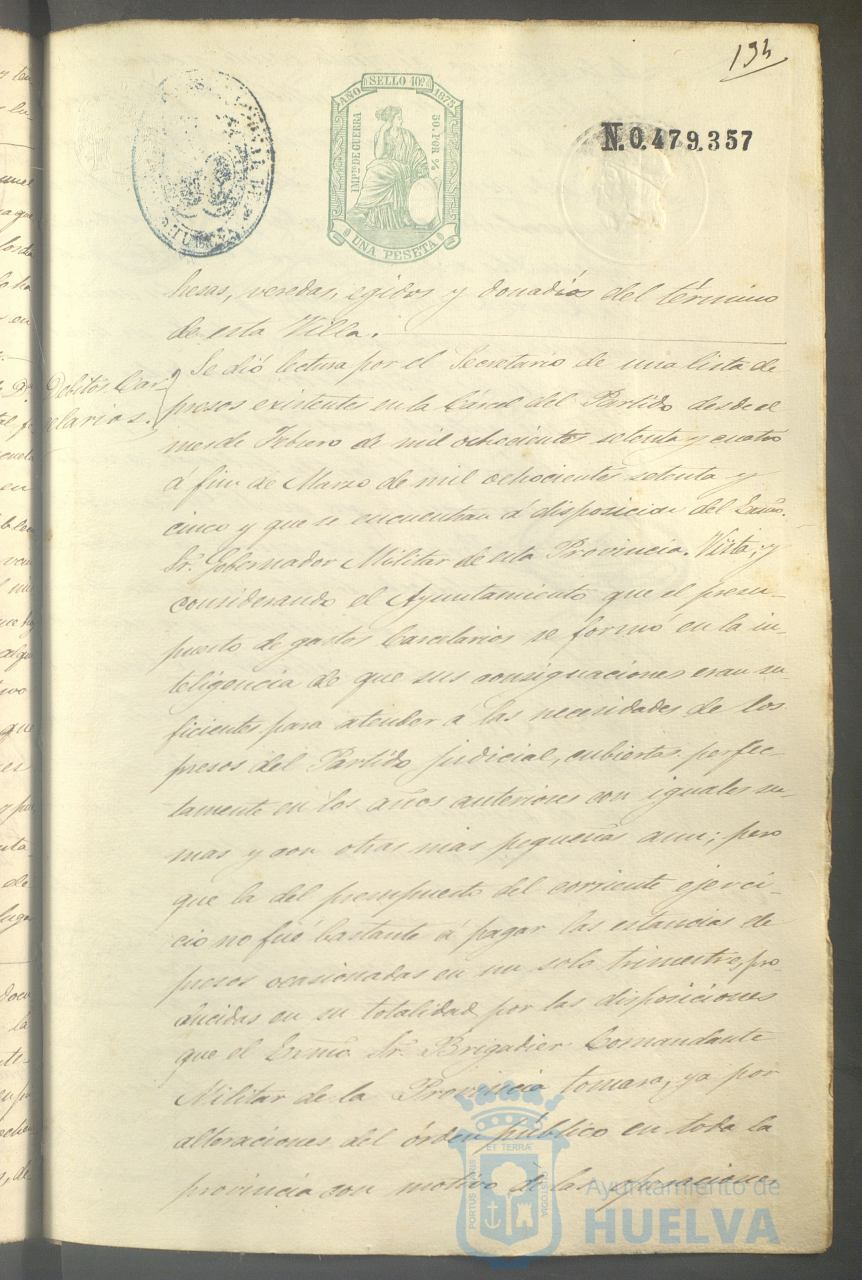 194
AÑO SELLO 10º 1875
IMPtº DE GUERRA
50. POR %
UNA PESETA
N.0.479.357
hesas, veredas, egidos y donadíos del término
de esta Villa.
Debitos Car-
celarios.
Se dió lectura por el Secretario de una lista de
presos existentes en la Cárcel del Partido desde el
mes de Febrero de mil ochocientos setenta y cuatro
á fin de Marzo de mil ochocientos setenta y
cinco y que se encuentran á disposicion del Exmo.
Sr. Gobernador Militar de esta Provincia. Vista; y
considerando el Ayuntamiento que el presu-
puesto de gastos Carcelarios se formó en la in-
teligencia de que sus consignaciones eran su-
ficientes para atender á las necesidades de los
presos del Partido judicial, cubiertas perfec-
tamente en los años anteriores con iguales su-
mas y con otras mas pequeñas aun; pero
que la del presupuesto del corriente ejerci-
cio no fué bastante á pagar las estancias de
presos ocasionadas en un solo trimestre, pro-
ducidas en su totalidad por las disposiciones
que el Exmo. Sr. Brigadier Comandante
Militar de la Provincia tomara, ya por
alteraciones del órden público en toda la
provincia con motivo de las operaciones
PORTUS MARIS
ET TERRÆ
CUSTODIA
Ayuntamiento de
HUELVA